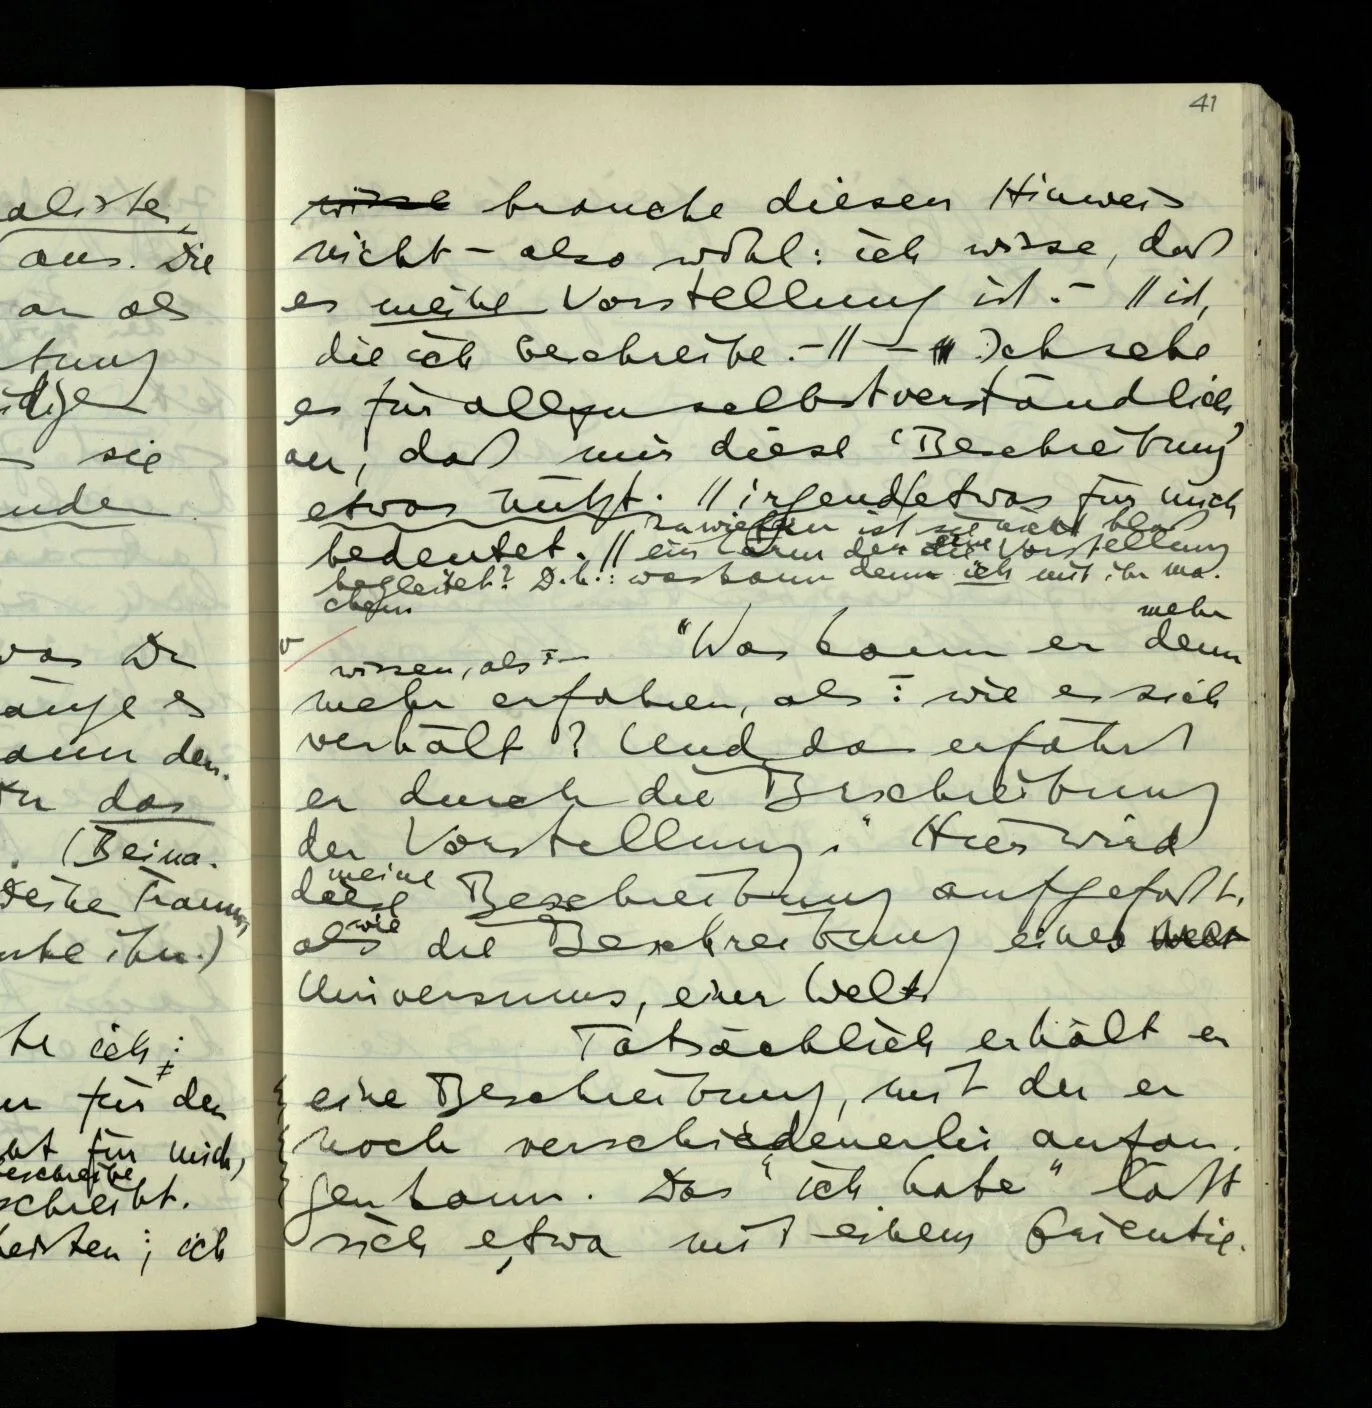 41
aliste,
aus. Die
an als
tung
sie
nden
was Du
dann den-
das
. (Beina-
Deine Traum
ihn.)
te ich:
für den
für mich,
beschreibe
schreibt.
; ich
wisse brauche diesen Hinweis
nicht – also wohl: ich wisse, daß
es meine Vorstellung ist. – // ist,
die ich beschreibe. – // – Ich sehe
es für allzu selbstverständlich
an, daß mir diese ‘Beschreibung’
etwas nützt. // irgend etwas für mich
inwiefern ist sie nicht bloß
bedeutet. // ein Lärm der eine Vorstellung
begleitet? D.h.: was kann denn ich mit ihr ma-
chen
mehr
“Was kann er denn
wissen, als: –
mehr erfahren, als: wie es sich
verhält? Und das erfährt
er durch die Beschreibung
der Vorstellung.” Hier wird
meine
diese Beschreibung aufgefaßt,
wie
als die Beschreibung eines Welt
Universums, einer Welt
Tatsächlich erhält er
eine Beschreibung, mit der er
noch verschiedenerlei anfan-
gen kann. Das “ich habe” läßt
sich etwa mit einem Orientie-